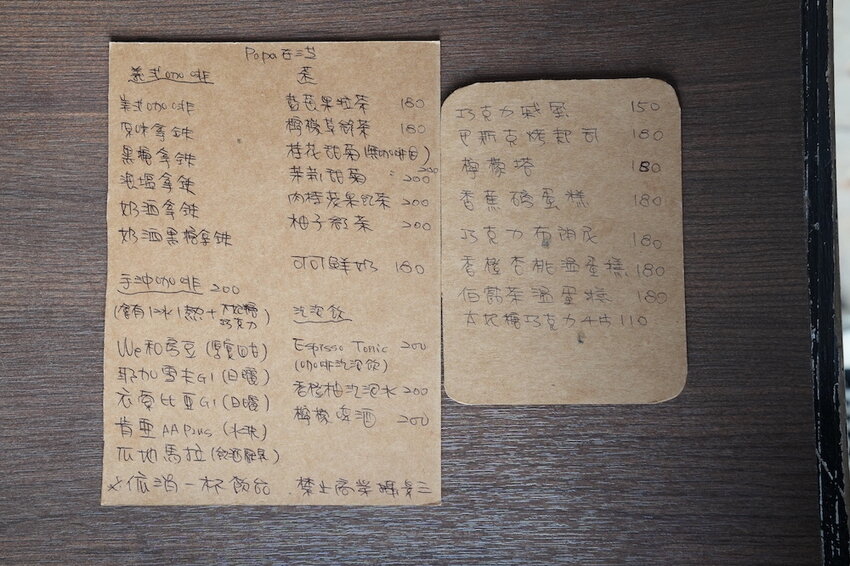 Papa石
義式咖啡
美式咖啡
原味拿鐵
黑糖拿鐵
海塩拿鐵
奶酒拿鐵
奶酒黑糖拿鐵
手沖咖啡 200
(含有1冰1熱+
巧克力)
We和房豆
耶加雪夫G1 (日曬)
衣索比亞G1 (日曬)
肯亞AA Plus (水洗)
瓜地馬拉
茶
果粒茶 180
檸檬草 茶 180
桂花甜菊(無咖啡因) 200
茉莉甜菊 200
肉桂蘋果 茶 200
柚子 茶 200
可可鮮奶 180
氣泡飲
Espresso Tonic 200
(咖啡氣泡飲)
香橙柚氣泡水 200
檸檬啤酒 200
※低消一杯飲品 禁止商業攝影
巧克力戚風 150
巴斯克烤起司 180
檸檬塔 180
香蕉磅蛋糕 180
巧克力布朗尼 180
香橙杏桃溫蛋糕 180
伯爵茶溫蛋糕 180
太妃糖巧克力4片 110